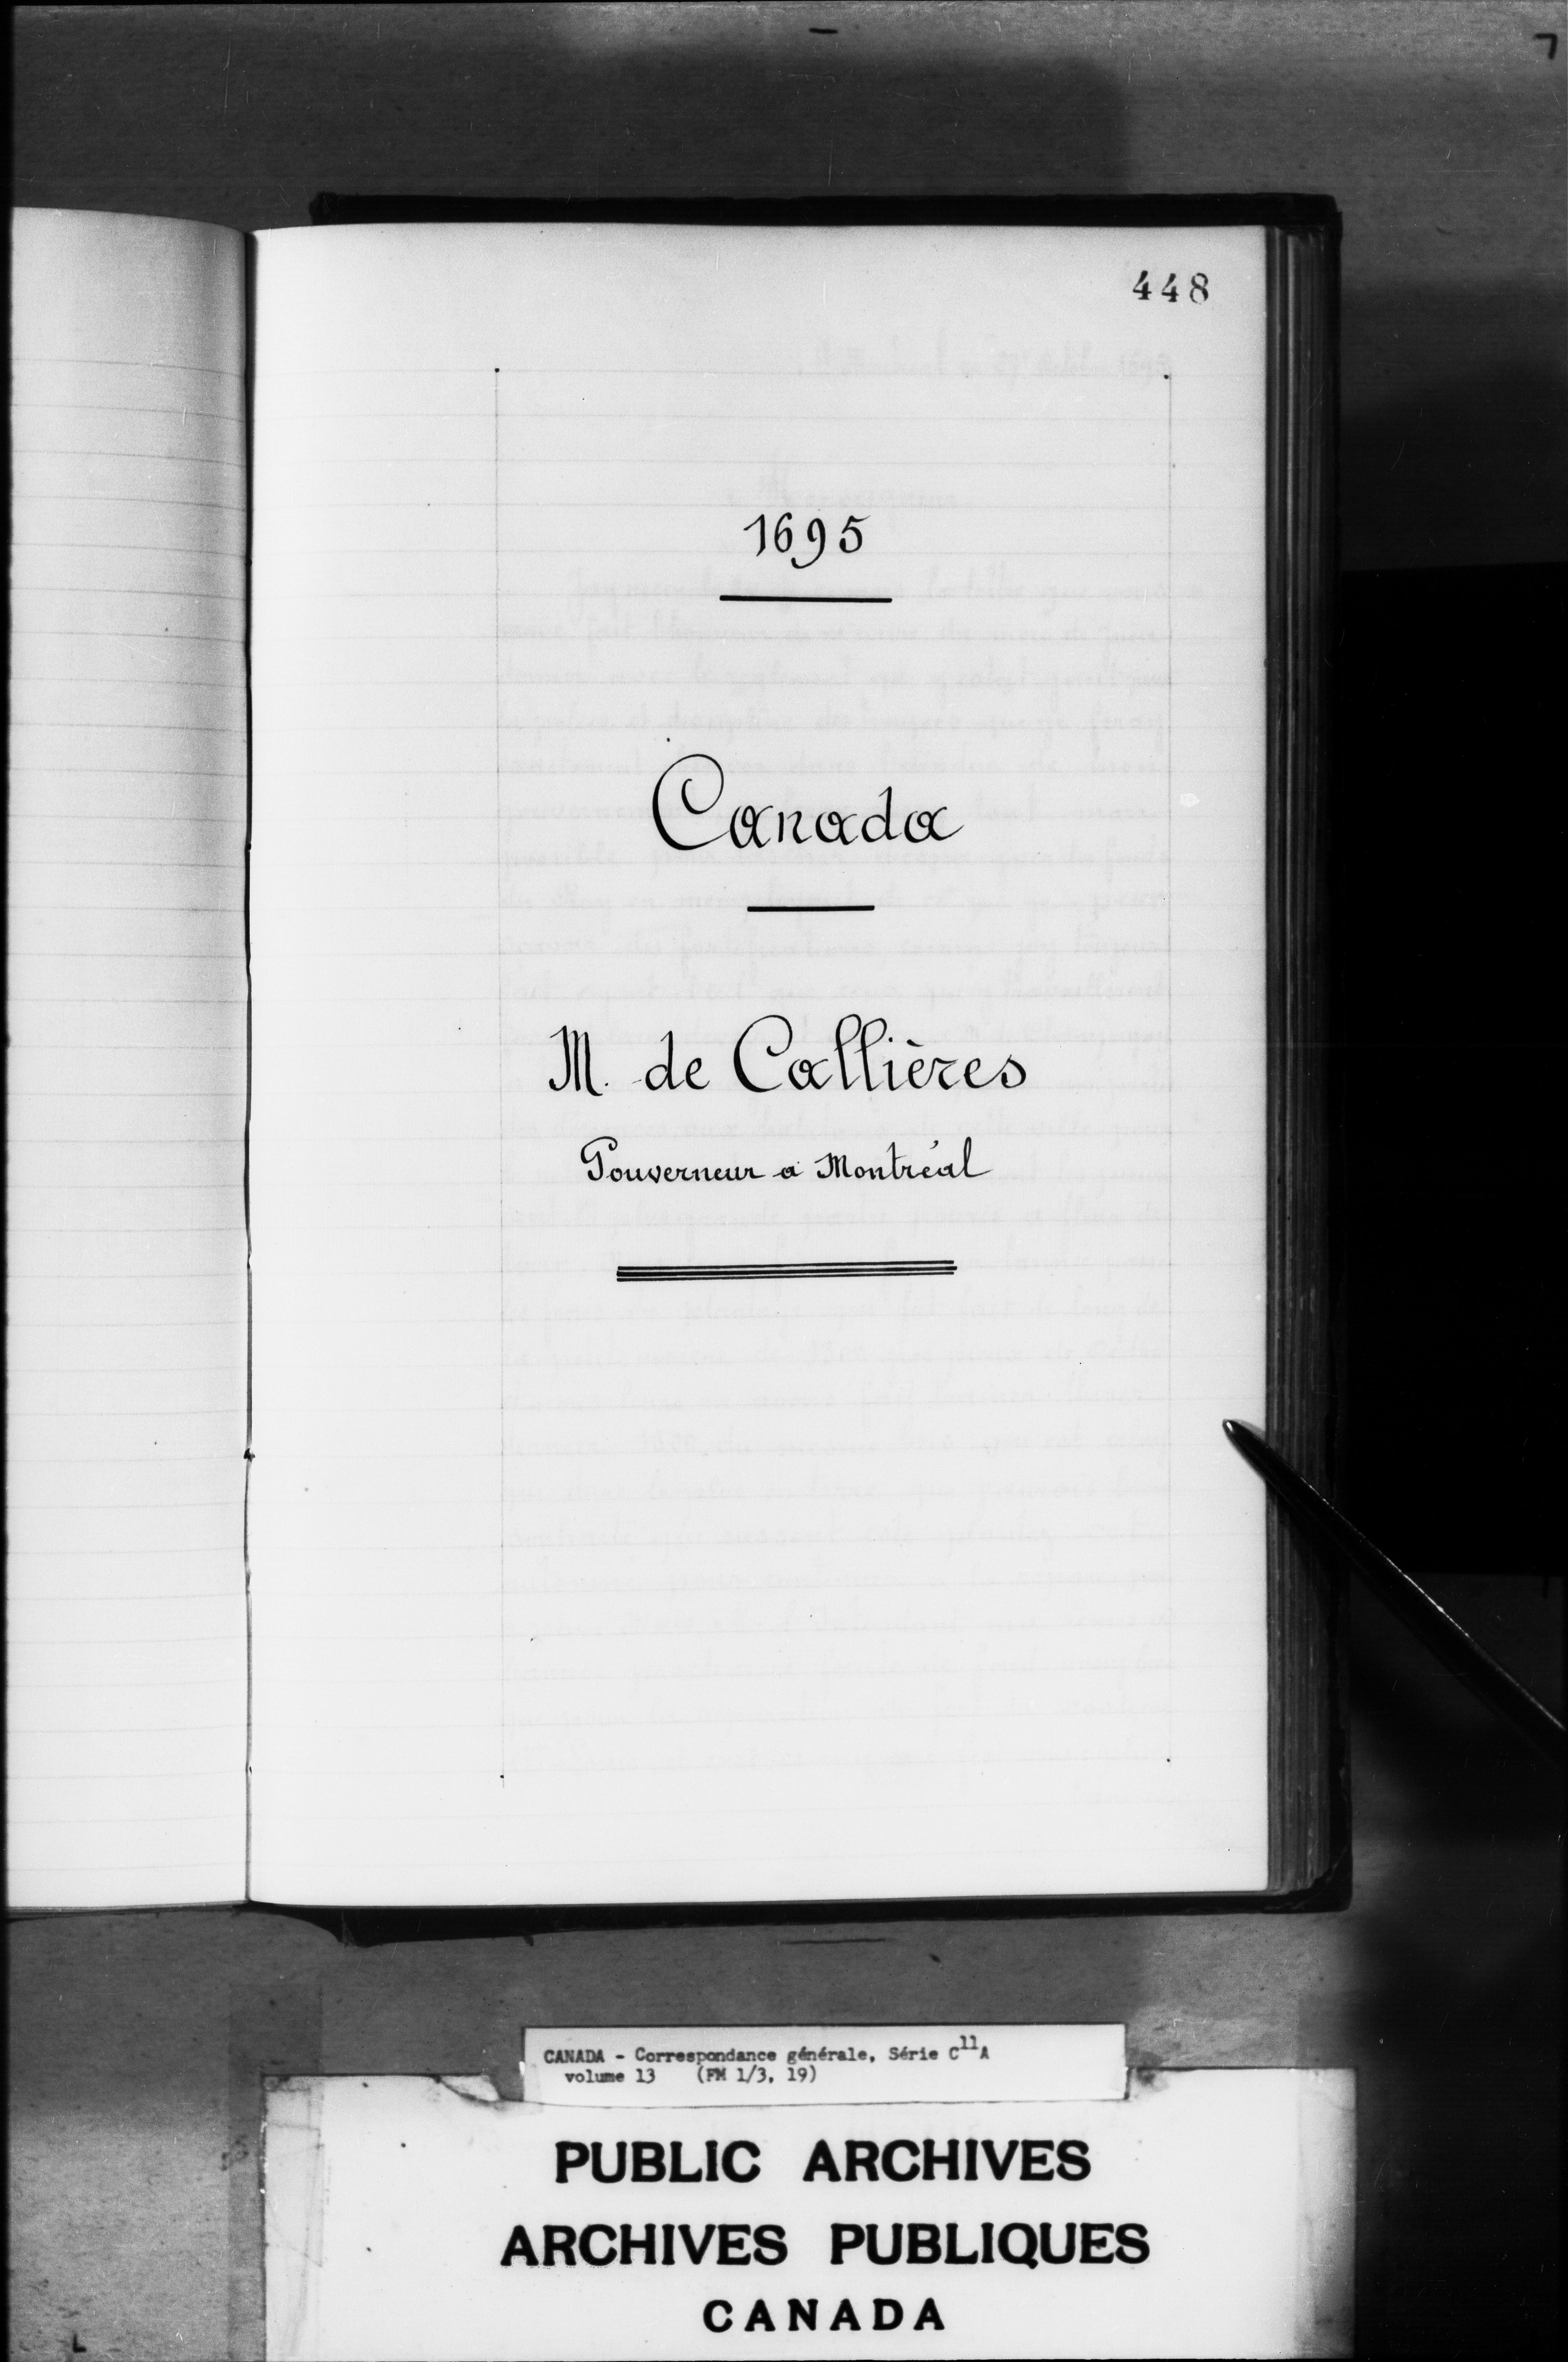 448
1695
Canada
M. de Callières
Gouverneur à Montréal
CANADA - Correspondance générale, Série C11A
volume 13 (FM 1/3, 19)
PUBLIC ARCHIVES
ARCHIVES PUBLIQUES
CANADA